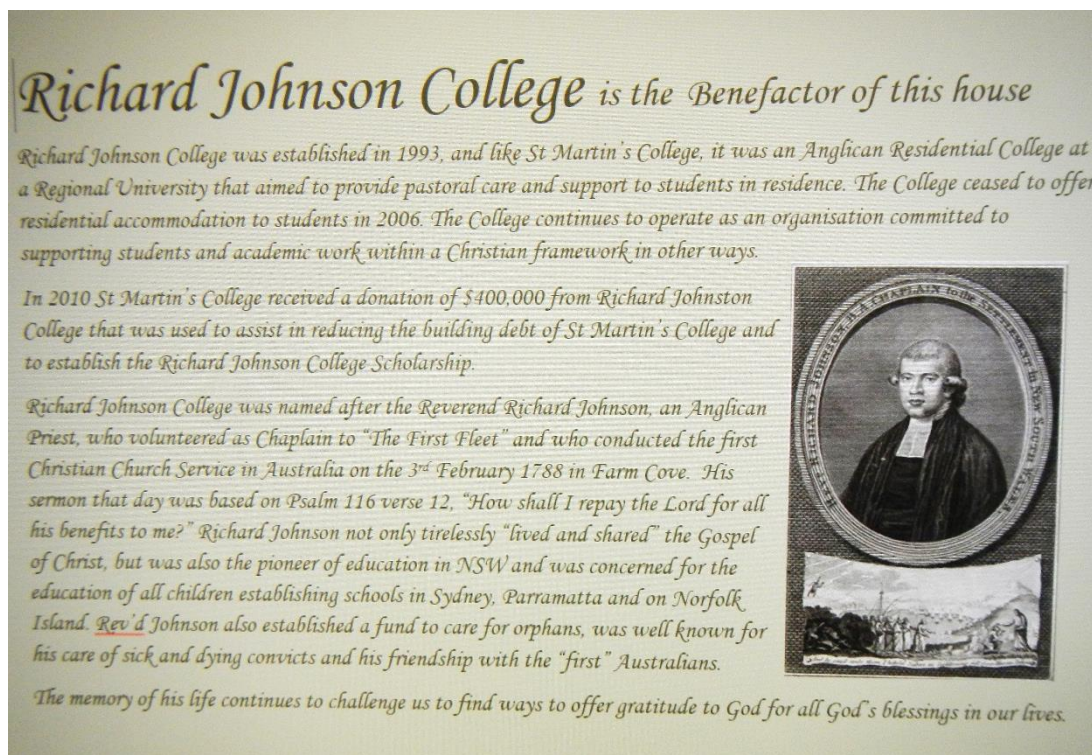 Richard Johnson College is the Benefactor of this house
Richard Johnson College was established in 1993, and like St Martin's College, it was an Anglican Residential College at
a Regional University that aimed to provide pastoral care and support to students in residence. The College ceased to offer
residential accommodation to students in 2006. The College continues to operate as an organisation committed to
supporting students and academic work within a Christian framework in other ways.
In 2010 St Martin's College received a donation of $400,000 from Richard Johnston
College that was used to assist in reducing the building debt of St Martin's College and
to establish the Richard Johnson College Scholarship.
Richard Johnson College was named after the Reverend Richard Johnson, an Anglican
Priest, who volunteered as Chaplain to "The First Fleet" and who conducted the first
Christian Church Service in Australia on the 3rd February 1788 in Farm Cove. His
sermon that day was based on Psalm 116 verse 12, "How shall I repay the Lord for all
his benefits to me?" Richard Johnson not only tirelessly "lived and shared" the Gospel
of Christ, but was also the pioneer of education in NSW and was concerned for the
education of all children establishing schools in Sydney, Parramatta and on Norfolk
Island. Rev'd Johnson also established a fund to care for orphans, was well known for
his care of sick and dying convicts and his friendship with the "first" Australians.
The memory of his life continues to challenge us to find ways to offer gratitude to God for all God's blessings in our lives.
RICHARD JOHNSON B.A. CHAPLAIN to the SETTLEMENT in NEW SOUTH WALES